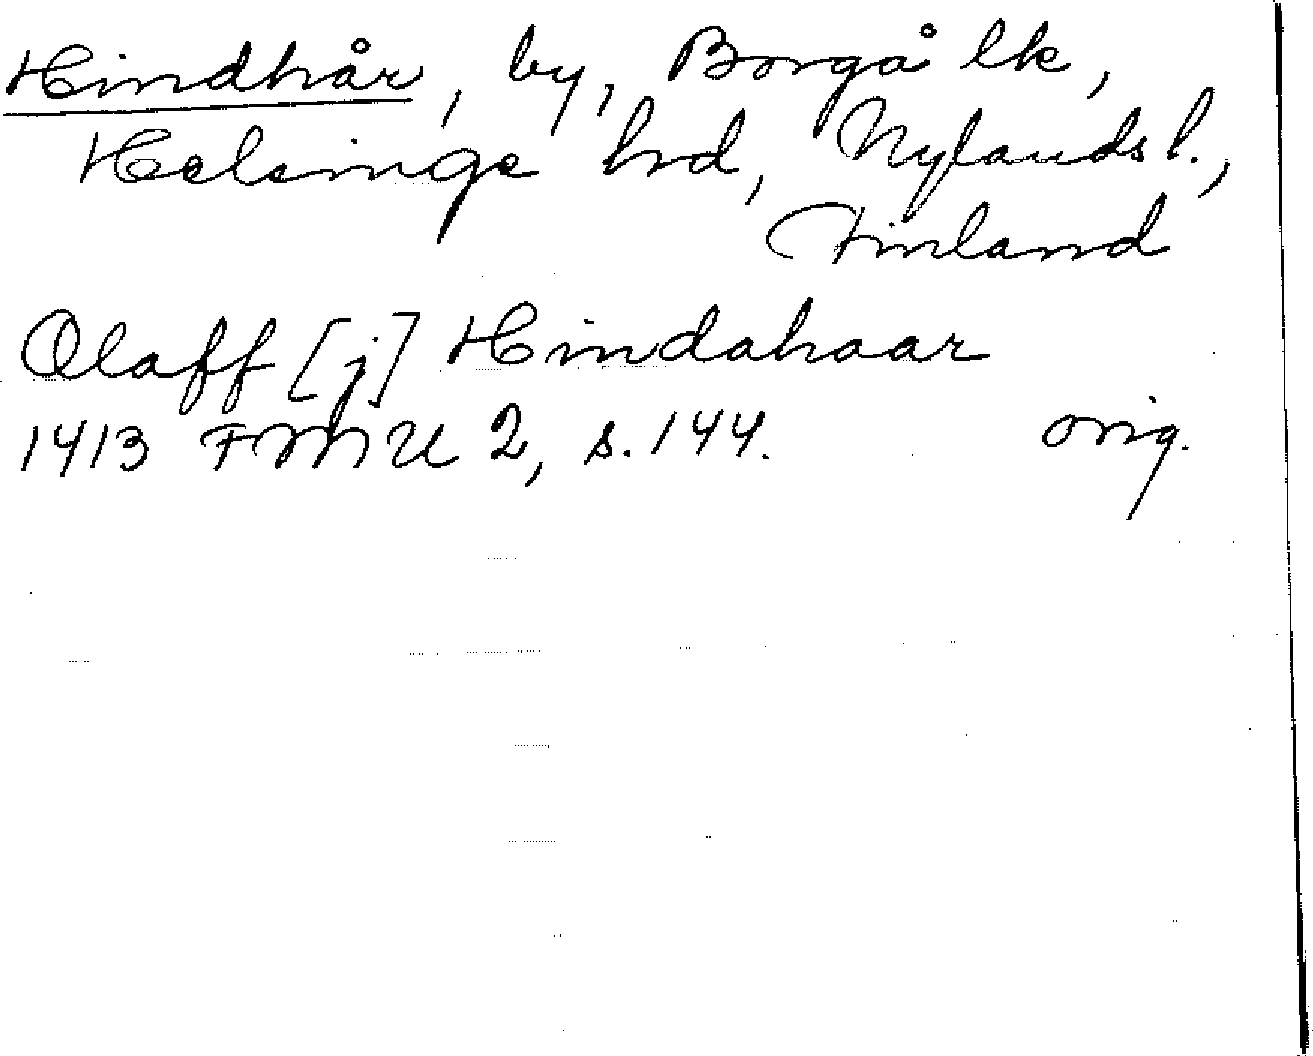 Hindhår, by, Borgå lk,
Helsinge hd, Nylands l.,
Finland
Olaff [j] Hindahaar
1413 FMU 2, s. 144. orig.